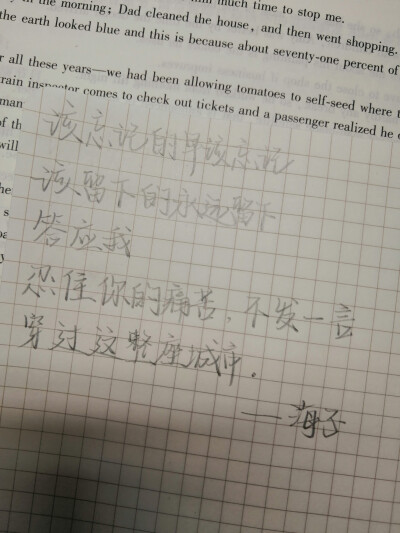 in the morning; Dad cleaned the house, and then went shopping.
the earth looked blue and this is because about seventy-one percent of
all these years—we had been allowing tomatoes to self-seed where
rain inspector comes to check out tickets and a passenger realized he
man
of th
will
该忘记的早该忘记
该留下的永远留下
答应我
忍住你的痛苦,不发一言
穿过这整座城市.
——海子